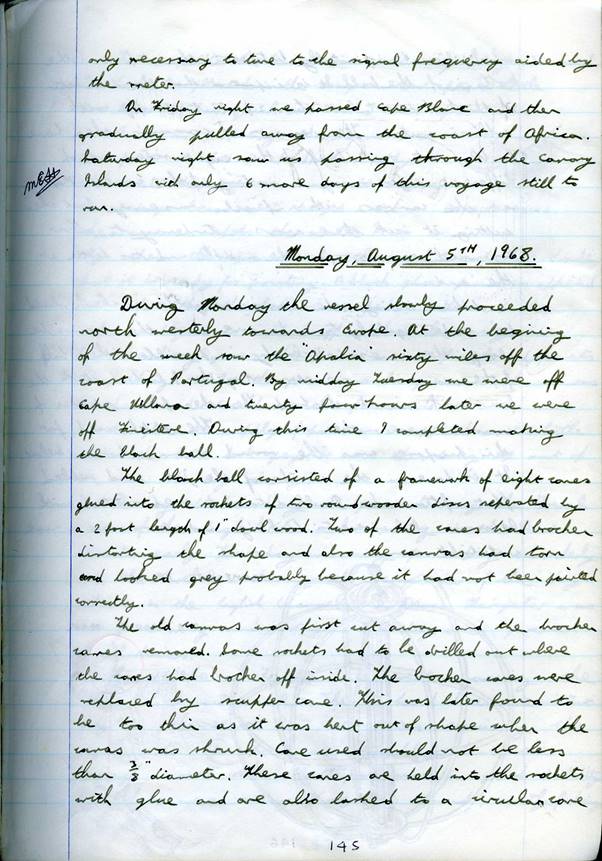 only necessary to tune to the signal frequency aided by
the meter.
On Friday night we passed Cape Blanc and then
gradually pulled away from the coast of Africa.
Saturday night saw us passing through the Canary
Islands with only 6 more days of this voyage still to
run.
Monday, August 5TH, 1968.
During Monday the vessel slowly proceeded
north westerly towards Europe. At the begining
of the week saw the "Apalia" sixty miles off the
coast of Portugal. By midday Tuesday we were off
Cape Villano and twenty four hours later we were
off Finistere. During this time I completed making
the black ball.
The black ball consisted of a framework of eight canes
glued into the sockets of two round wooden discs seperated by
a 2 foot length of 1" dowl wood. Two of the canes had brocken
distorting the shape and also the canvas had torn
and looked grey probably because it had not been painted
correctly.
The old canvas was first cut away and the brocken
canes removed. Some sockets had to be drilled out where
the canes had brocken off inside. The brocken canes were
replaced by scupper cane. This was later found to
be too thin as it was bent out of shape when the
canvas was shrunk. Cane used should not be less
than 3/8" diameter. These canes are held into the sockets
with glue and are also lashed to a circular cane
145